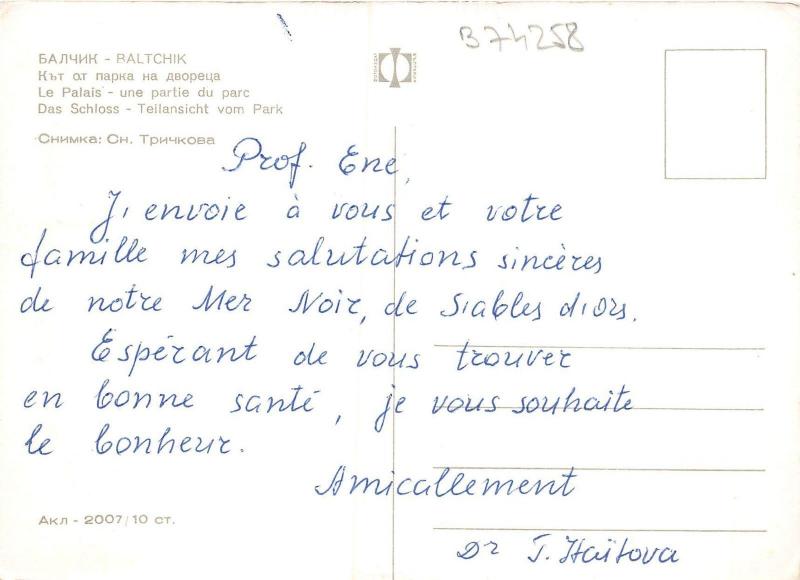 B74258
БАЛЧИК - BALTCHIK
Кът от парка на двореца
Le Palais - une partie du parc
Das Schloss - Teilansicht vom Park
Снимка: Сн. Тричкова
Prof. Ene,
J'envoie à vous et votre
famille mes salutations sincères
de notre Mer Noir, de Siables d'ors.
Espérant de vous trouver
en bonne santé, je vous souhaite
le bonheur.
Amicallement
Акл - 2007/10 ст.
Dr T. Haïtova